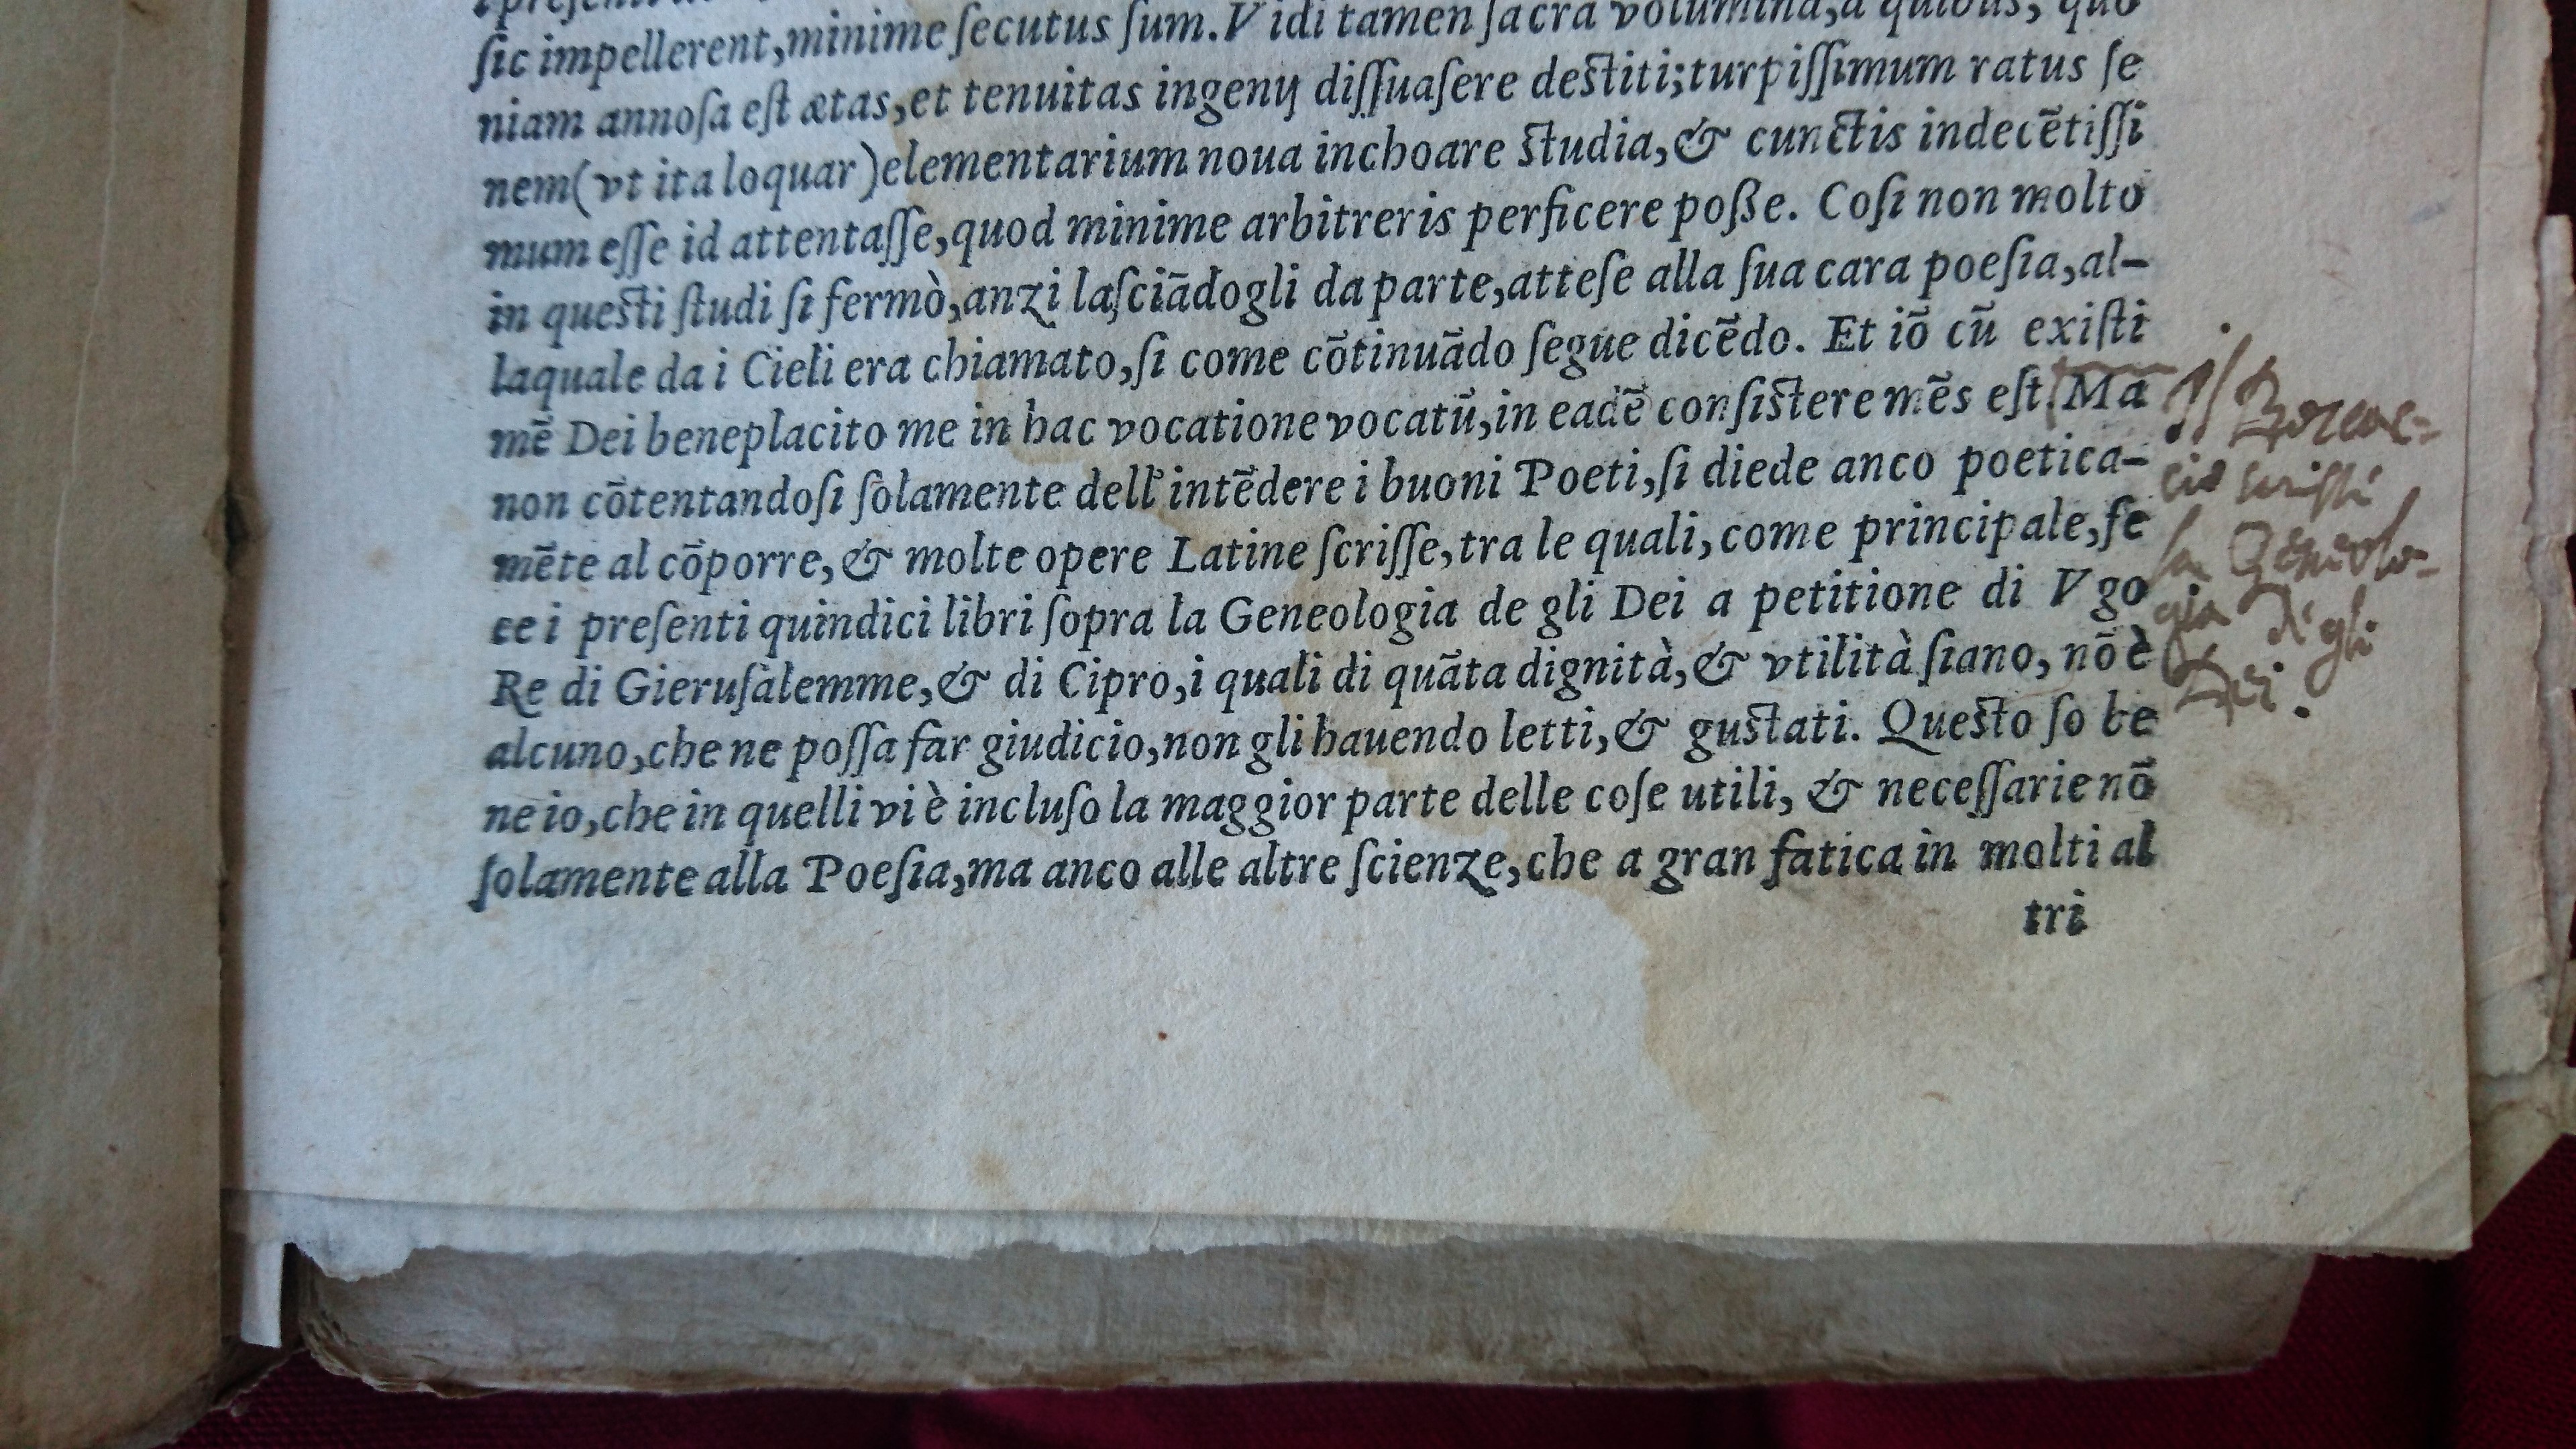 sic impellerent, minime ſecutus ſum. V idi tamen ſacra volumina, a quibus, quo
niam annoſa eſt ætas, et tenuitas ingenij diſſuaſere deſtiti; turpiſſimum ratus ſe
nem (vt ita loquar) elementarium noua inchoare ſtudia, & cunctis indecẽtiſſi
mum eſſe id attentaſſe, quod minime arbitreris perficere poße. Coſi non molto
in queſti ſtudi ſi fermò, anzi laſciãdogli da parte, atteſe alla ſua cara poeſia, al-
laquale da i Cieli era chiamato, ſi come cõtinuãdo ſegue dicẽdo. Et iõ cũ exiſti
mẽ Dei beneplacito me in hac vocatione vocatũ, in eadẽ conſiſtere mẽs eſt. Ma
non cõtentandoſi ſolamente dell'intẽdere i buoni Poeti, ſi diede anco poetica-
mẽte al cõporre, & molte opere Latine ſcriſſe, tra le quali, come principale, fe
ce i preſenti quindici libri ſopra la Geneologia de gli Dei a petitione di V go
Re di Gieruſalemme, & di Cipro, i quali di quãta dignità, & vtilità ſiano, nõ è
alcuno, che ne poſſa far giudicio, non gli hauendo letti, & guſtati. Queſto ſo be
ne io, che in quelli vi è incluſo la maggior parte delle coſe utili, & neceſſarie nõ
ſolamente alla Poeſia, ma anco alle altre ſcienze, che a gran fatica in molti al
tri
Il Boccac-
cio
la Geneolo-
gia di gli
Dei.